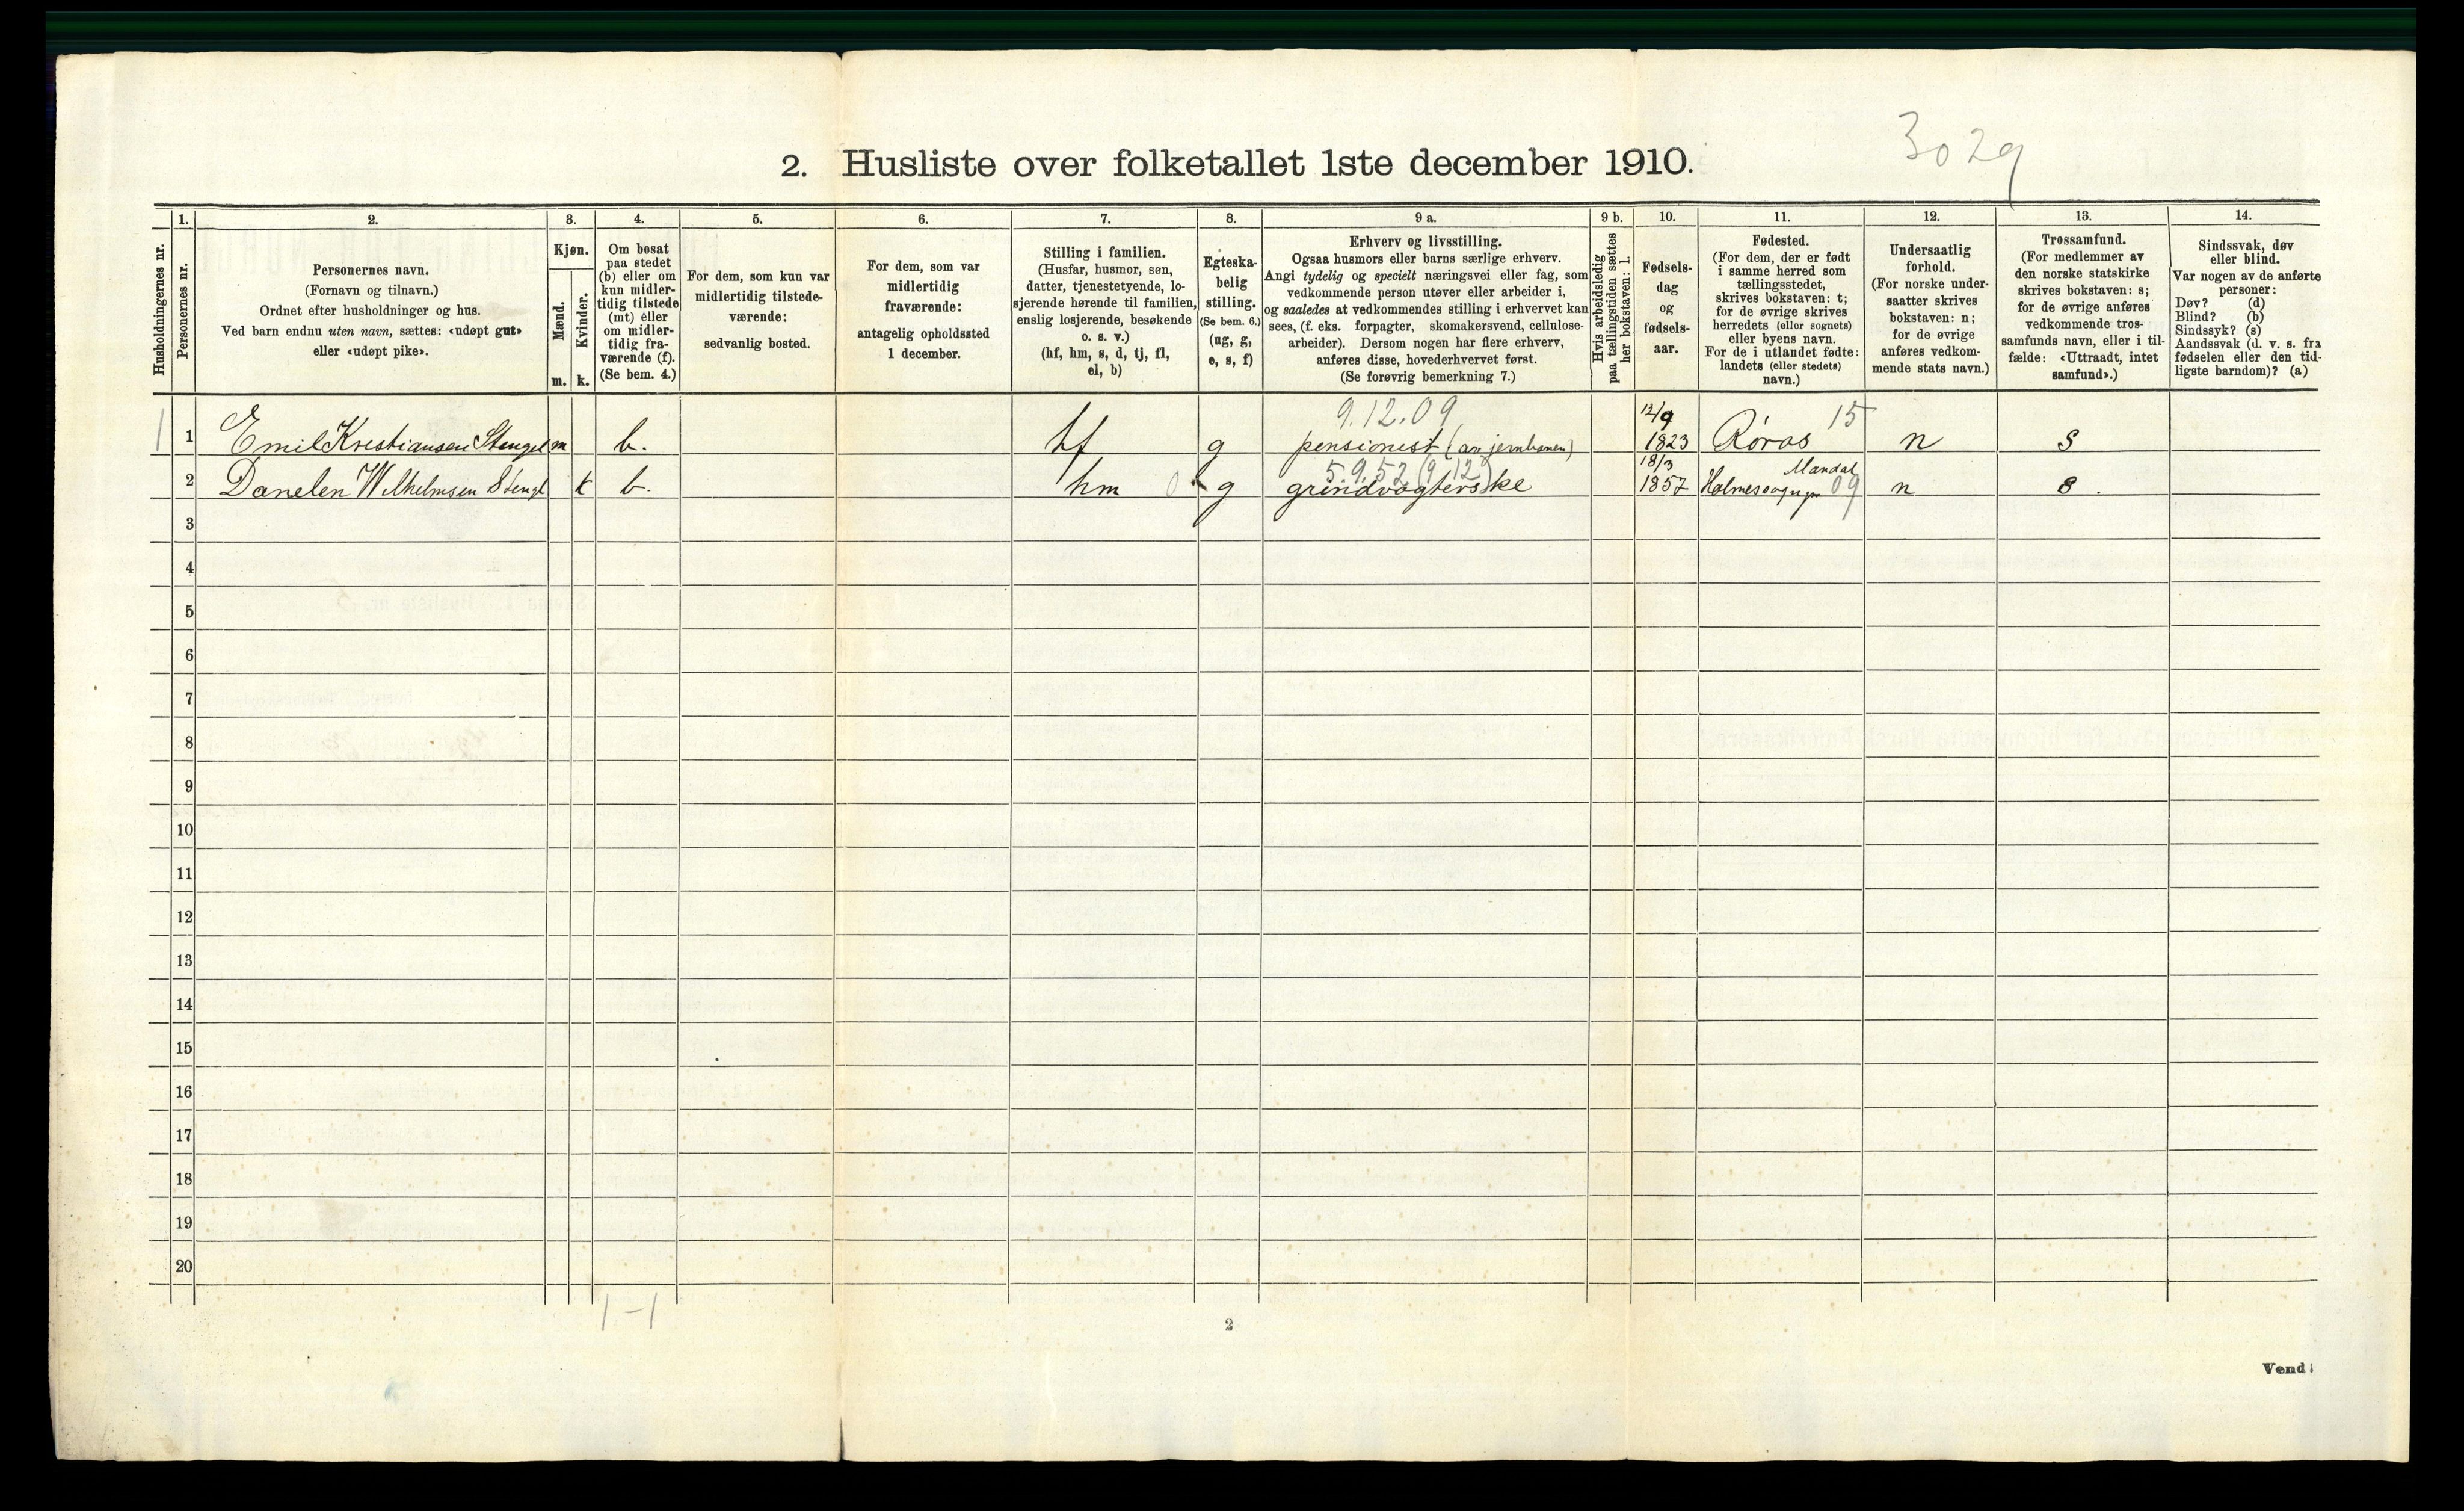 3029
2. Husliste over folketallet 1ste december 1910.
Husholdningernes nr.
1.
Personernes nr.
2.
Personernes navn.
(Fornavn og tilnavn.)
Ordnet efter husholdninger og hus.
Ved barn endnu uten navn, sættes: «udøpt gut»
eller «udøpt pike».
3.
Kjøn.
Mænd.
Kvinder.
m. k.
4.
Om bosat
paa stedet
(b) eller om
kun midler-
tidig tilstede
(mt) eller
om midler-
tidig fra-
værende (f).
(Se bem. 4.)
5.
For dem, som kun var
midlertidig tilstede-
værende:
sedvanlig bosted.
6.
For dem, som var
midlertidig
fraværende:
antagelig opholdssted
1 december.
7.
Stilling i familien.
(Husfar, husmor, søn,
datter, tjenestetyende, lo-
sjerende hørende til familien,
enslig losjerende, besøkende
o. s. v.)
(hf, hm, s, d, tj, fl,
el, b)
8.
Egteska-
belig
stilling.
(Se bem. 6.)
(ug, g,
e, s, f)
9 a.
Erhverv og livsstilling.
Ogsaa husmors eller barns særlige erhverv.
Angi tydelig og specielt næringsvei eller fag, som
vedkommende person utøver eller arbeider i,
og saaledes at vedkommendes stilling i erhvervet kan
sees, (f. eks. forpagter, skomakersvend, cellulose-
arbeider). Dersom nogen har flere erhverv,
anføres disse, hovederhvervet først.
(Se forøvrig bemerkning 7.)
9 b.
Hvis arbeidsledig
paa tællingstiden sættes
her bokstaven: l.
10.
Fødsels-
dag
og
fødsels-
aar.
11.
Fødested.
(For dem, der er født
i samme herred som
tællingsstedet,
skrives bokstaven: t;
for de øvrige skrives
herredets (eller sognets)
eller byens navn.
For de i utlandet fødte:
landets (eller stedets)
navn.)
12.
Undersaatlig
forhold.
(For norske under-
saatter skrives
bokstaven: n;
for de øvrige
anføres vedkom-
mende stats navn.)
13.
Trossamfund.
(For medlemmer av
den norske statskirke
skrives bokstaven: s;
for de øvrige anføres
vedkommende tros-
samfunds navn, eller i til-
fælde: «Uttraadt, intet
samfund».)
14.
Sindssvak, døv
eller blind.
Var nogen av de anførte
personer:
Døv? (d)
Blind? (b)
Sindssyk? (s)
Aandssvak (d. v. s. fra
fødselen eller den tid-
ligste barndom)? (a)
9.12.09 12/9 15
1 1 Emil Kristiansen Stengel m b. hf g pensionist (av jernbanen) 1823 Røros n s
5.9.52 (9.12) 18/3 Mandal
2 Danelen Wilhelmsen Stengl k b. hm 0 g grindvogterske 1857 Holmesogngn 09 n s.
3
4
5
6
7
8
9
10
11
12
13
14
15
16
17
18
19
20
1 - 1
2
Vend!